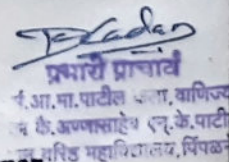 प्रभारी प्राचार्य
आ.मा.पाटील कला, वाणिज्य
कै.अण्णासाहेब एन्.के.पाटी
वरिष्ठ महाविद्यालय, पिंपळने